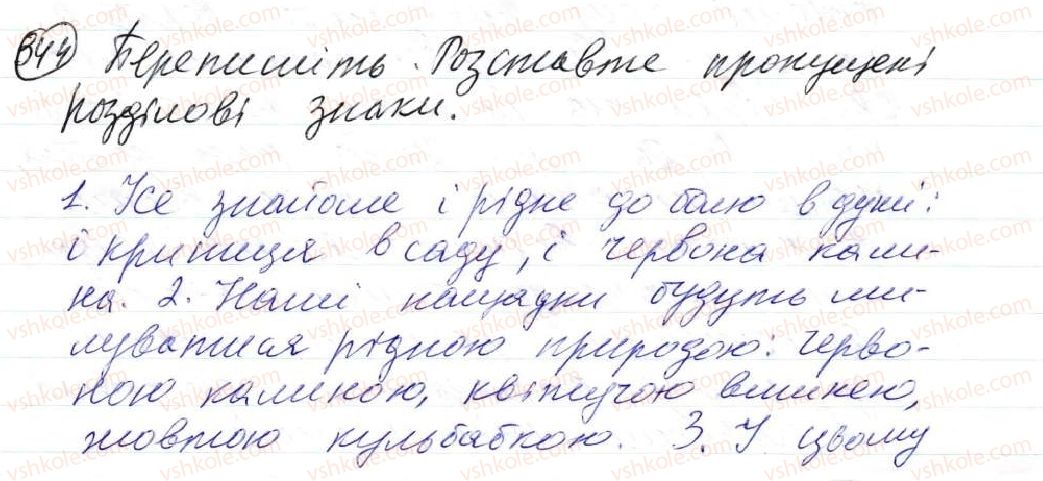 344 Перепишіть. Розставте пропущені
розділові знаки.
1. Усе знайоме і рідне до болю в душі:
і криниця в саду, і червона кали-
на. 2. Наші нащадки будуть ми-
луватися рідною природою: черво-
ною калиною, квітучою вишнею,
жовтою кульбабкою. 3. У цьому